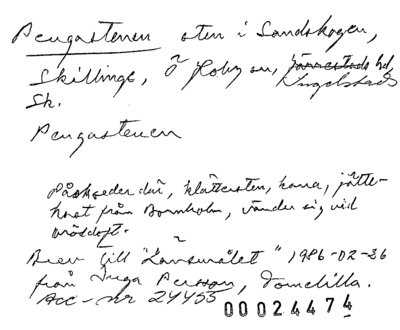 Pengastenen sten i Sandskogen,
Skillinge, Ö Hoby sn, Järrestads hd,
Ingelstads
Sk.
Pengastenen
Påskseder där, klättersten, kana, jätte-
kast från Bornholm, vänder sig vid
brödoft.
Brev till "Länsmålet" 1986-02-26
från Inga Persson, Tomelilla.
Acc-nr 24455
00024474